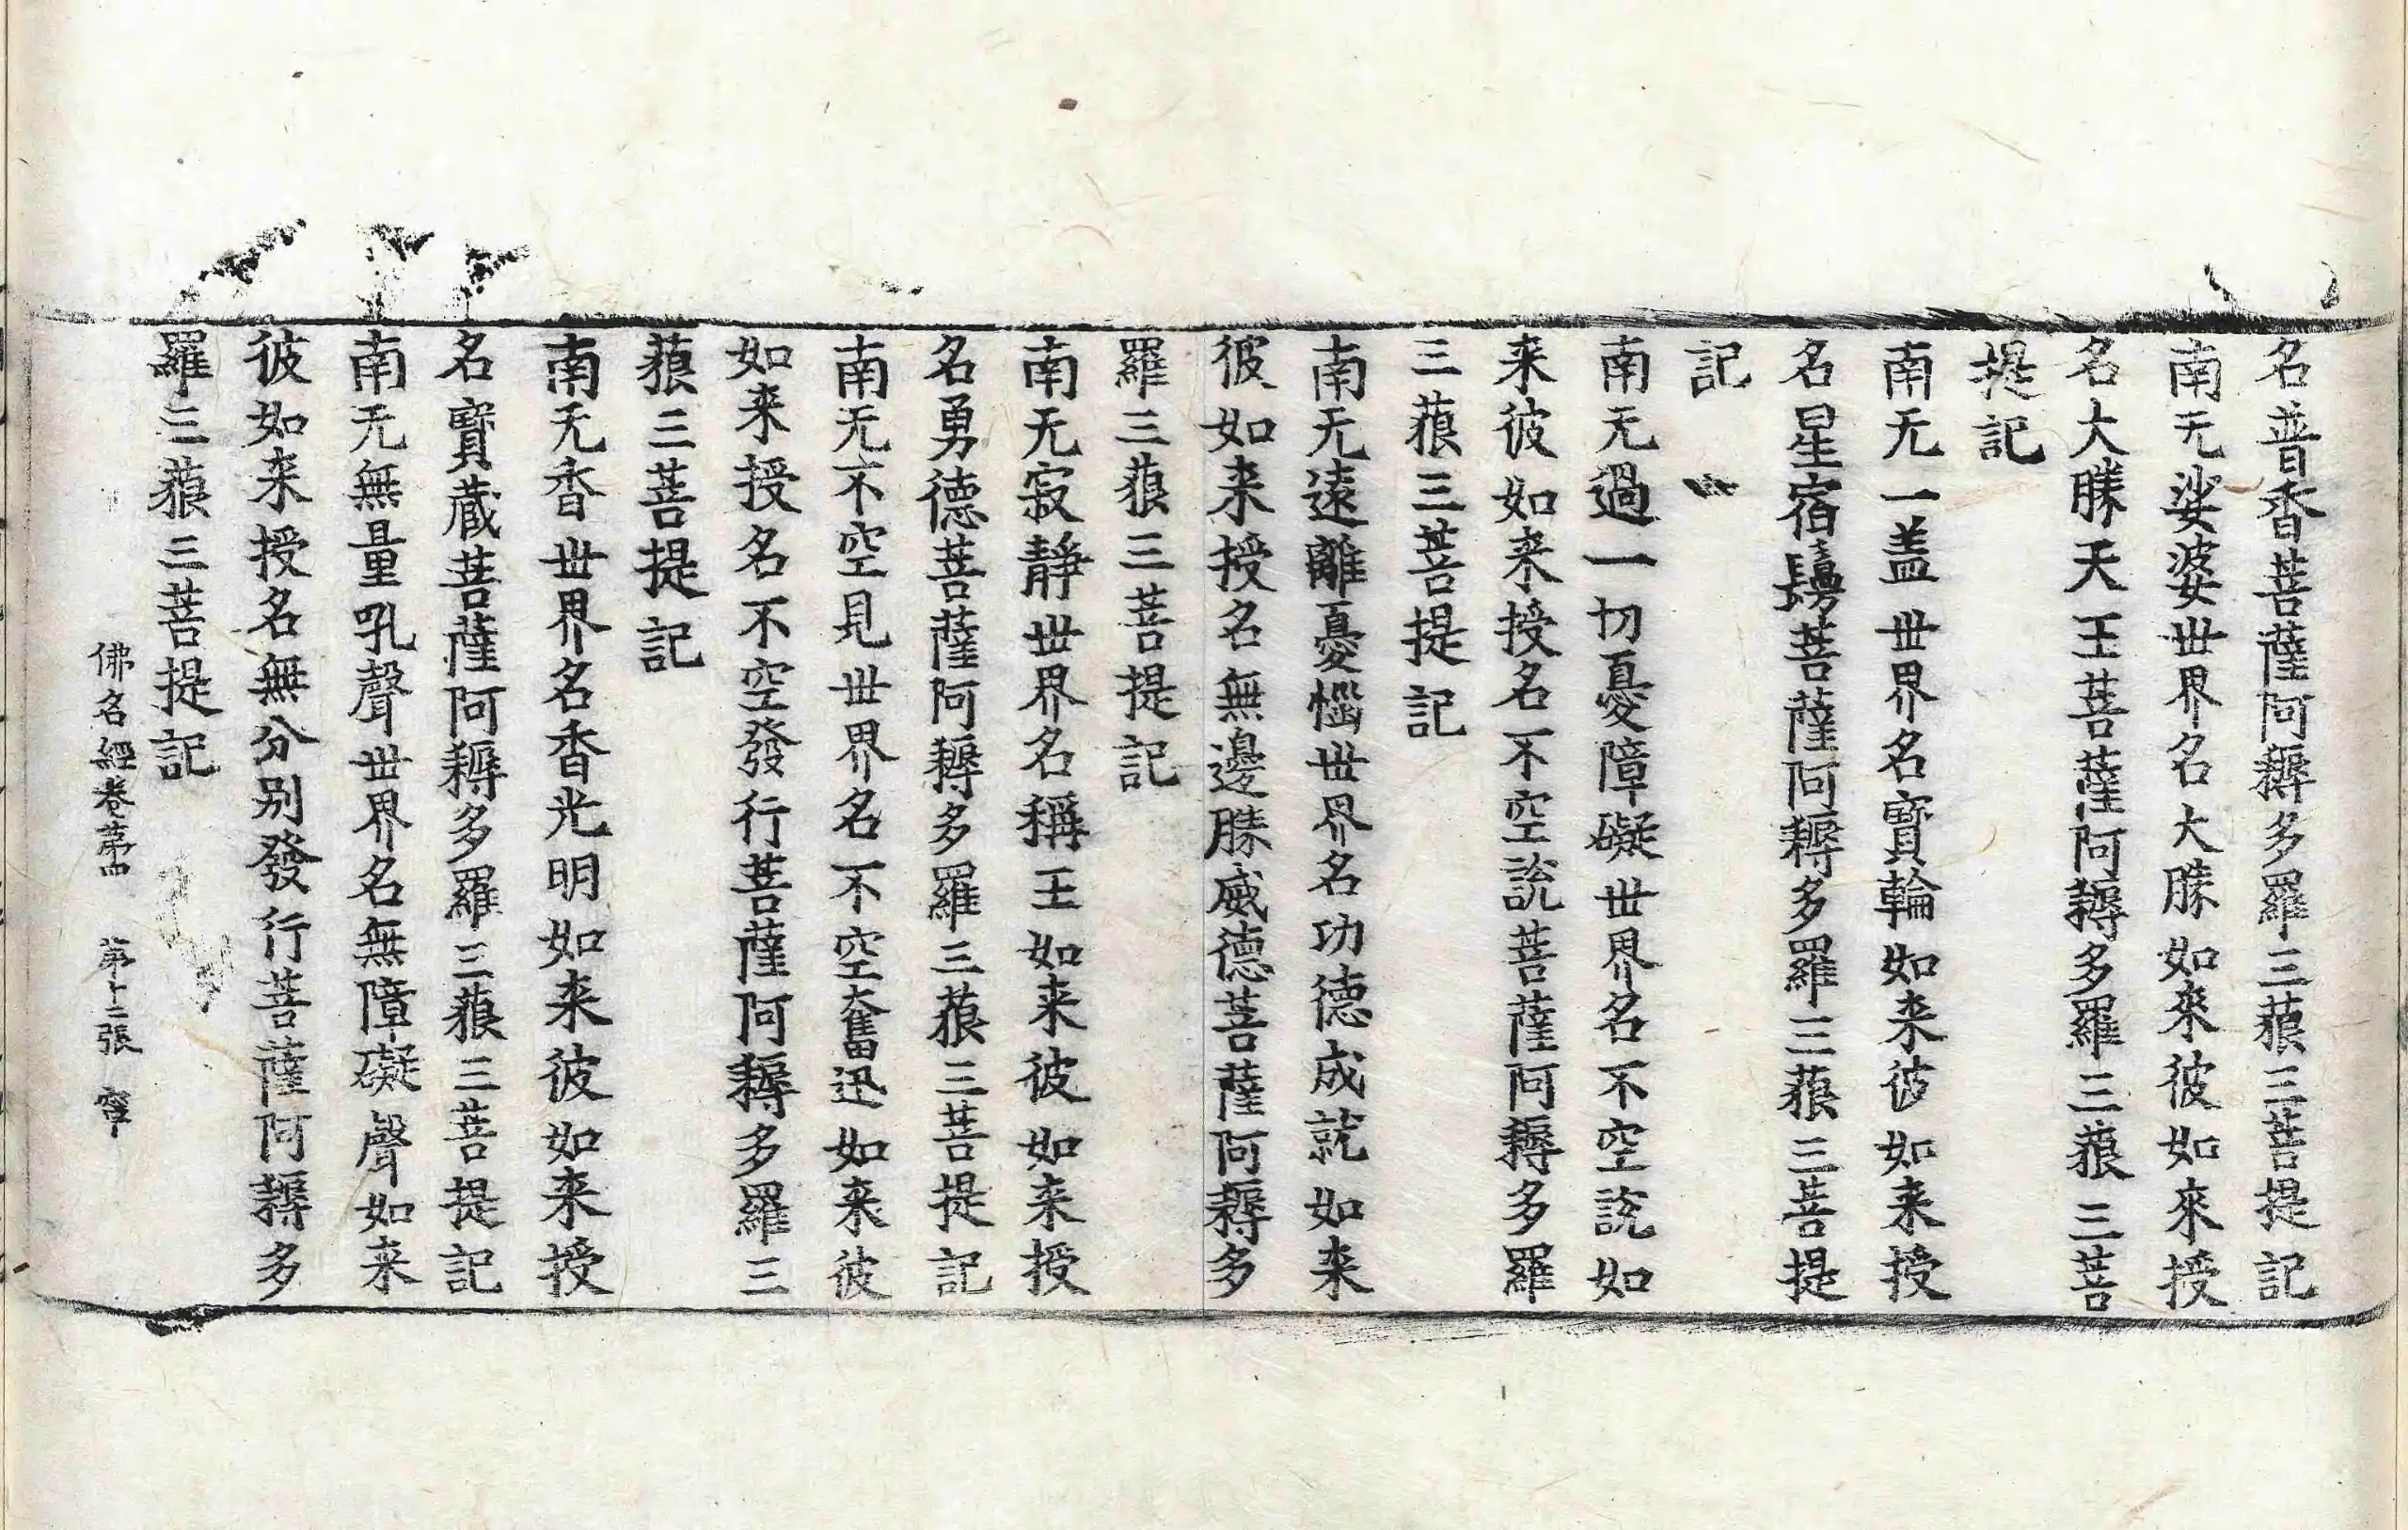 名普香菩薩阿耨多羅三藐三菩提記
南无娑婆世界名大勝如來彼如來授
名大勝天王菩薩阿耨多羅三藐三菩
提記
南无一盖世界名寶輪如来彼如来授
名星宿鬘菩薩阿耨多羅三藐三菩提
記
南无過一切憂障礙世界名不空說如
来彼如来授名不空說菩薩阿耨多羅
三藐三菩提記
南无遠離憂惱世界名功德成就如来
彼如来授名無邊勝威德菩薩阿耨多
羅三藐三菩提記
南无寂靜世界名稱王如来彼如来授
名勇德菩薩阿耨多羅三藐三菩提記
南无不空見世界名不空奮迅如来彼
如来授名不空發行菩薩阿耨多羅三
藐三菩提記
南无香世界名香光明如来彼如来授
名寶藏菩薩阿耨多羅三藐三菩提記
南无無量吼聲世界名無障礙聲如来
彼如来授名無分別發行菩薩阿耨多
羅三藐三菩提記
佛名經卷第四 第十二張